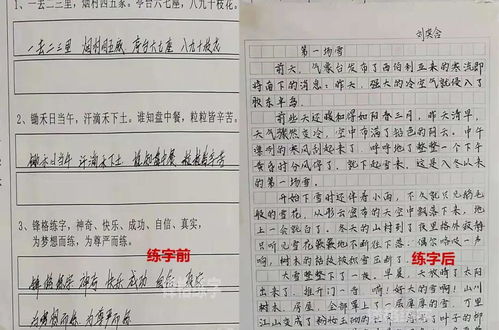 1、一去二三里，烟村四五家。亭台六七座，八九十枝花。
一去二三里 烟村四五家 亭台六七座 八九十枝花
2、锄禾日当午，汗滴禾下土。谁知盘中餐，粒粒皆辛苦。
锄禾日当午 汗滴禾下土 谁知盘中餐 粒粒皆辛苦
3、锋格练字，神奇、快乐、成功、自信、真实，
为梦想而练，为尊严而练。
练字前
锋格练字 神奇 快乐 成功 自信 真实
为梦想而练 为尊严而练
刘奕含
第一场雪
前天，气象台发布了西伯利亚来的寒流即
将南下的消息：昨天，强大的冷空气就侵入了
胶东半岛。
前些天还暖和得如阳春三月，昨天清早，
天气骤然变冷，空中布满了铅色的阴云。中午
凛冽的寒风刮起来了，呼呼地了整整一个下午
黄昏时分风停了，就下起雪来。这是入冬以来
的第一场雪。
开始下雪时还伴着小雨，下久就只见鹅毛
般的雪花，从彤云密布的天空中飘落下来。地
上一会就白了。冬天的山村到了夜里格外寂静
只听见雪花簌簌地不断往下落。偶尔咯吱一声
响，树木的枯枝被积雪压断了
练字后
大雪整整下了一夜。早晨，天放晴了太阳
出来了。推开门一看，嗬！好大的雪啊！山川
树木、房屋，全部罩上了一层厚厚的雪，万里
江山变成了粉妆玉砌的